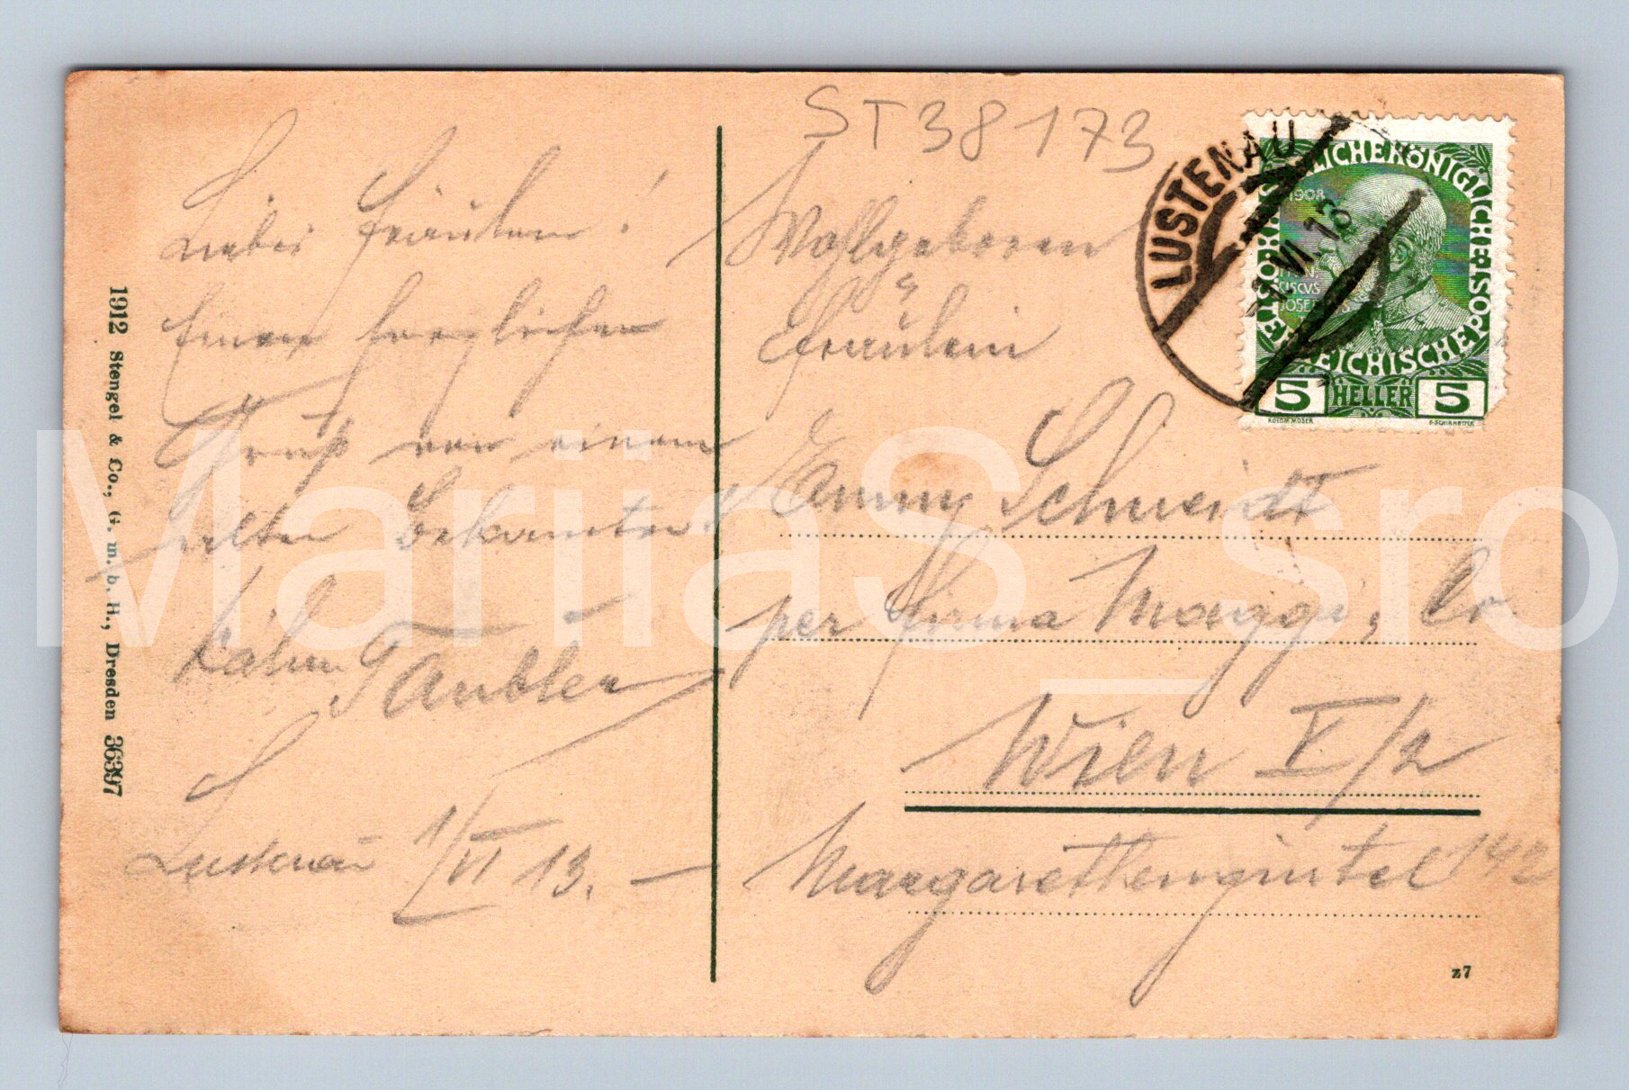 Liebes Fräulein!
Einen herzlichen
Gruß von einem
alten Bekannten!
Taubler
Lustenau 1/VI 13. —
1912 Stengel & Co., G. m. b. H., Dresden 36397
ST38173
Wohlgeboren
Fräulein
Emmy Schmidt
per Firma Maggi, Co
Wien V/2
Margarethengürtel 142
z7
LUSTENAU
VI. 13
KAISERLICHE KÖNIGLICHE ÖSTERREICHISCHE POST
1908
JOSEF
5 HELLER 5
KOLOM. MOSER
F. SCHIRNBÖCK
MariiaS_sro